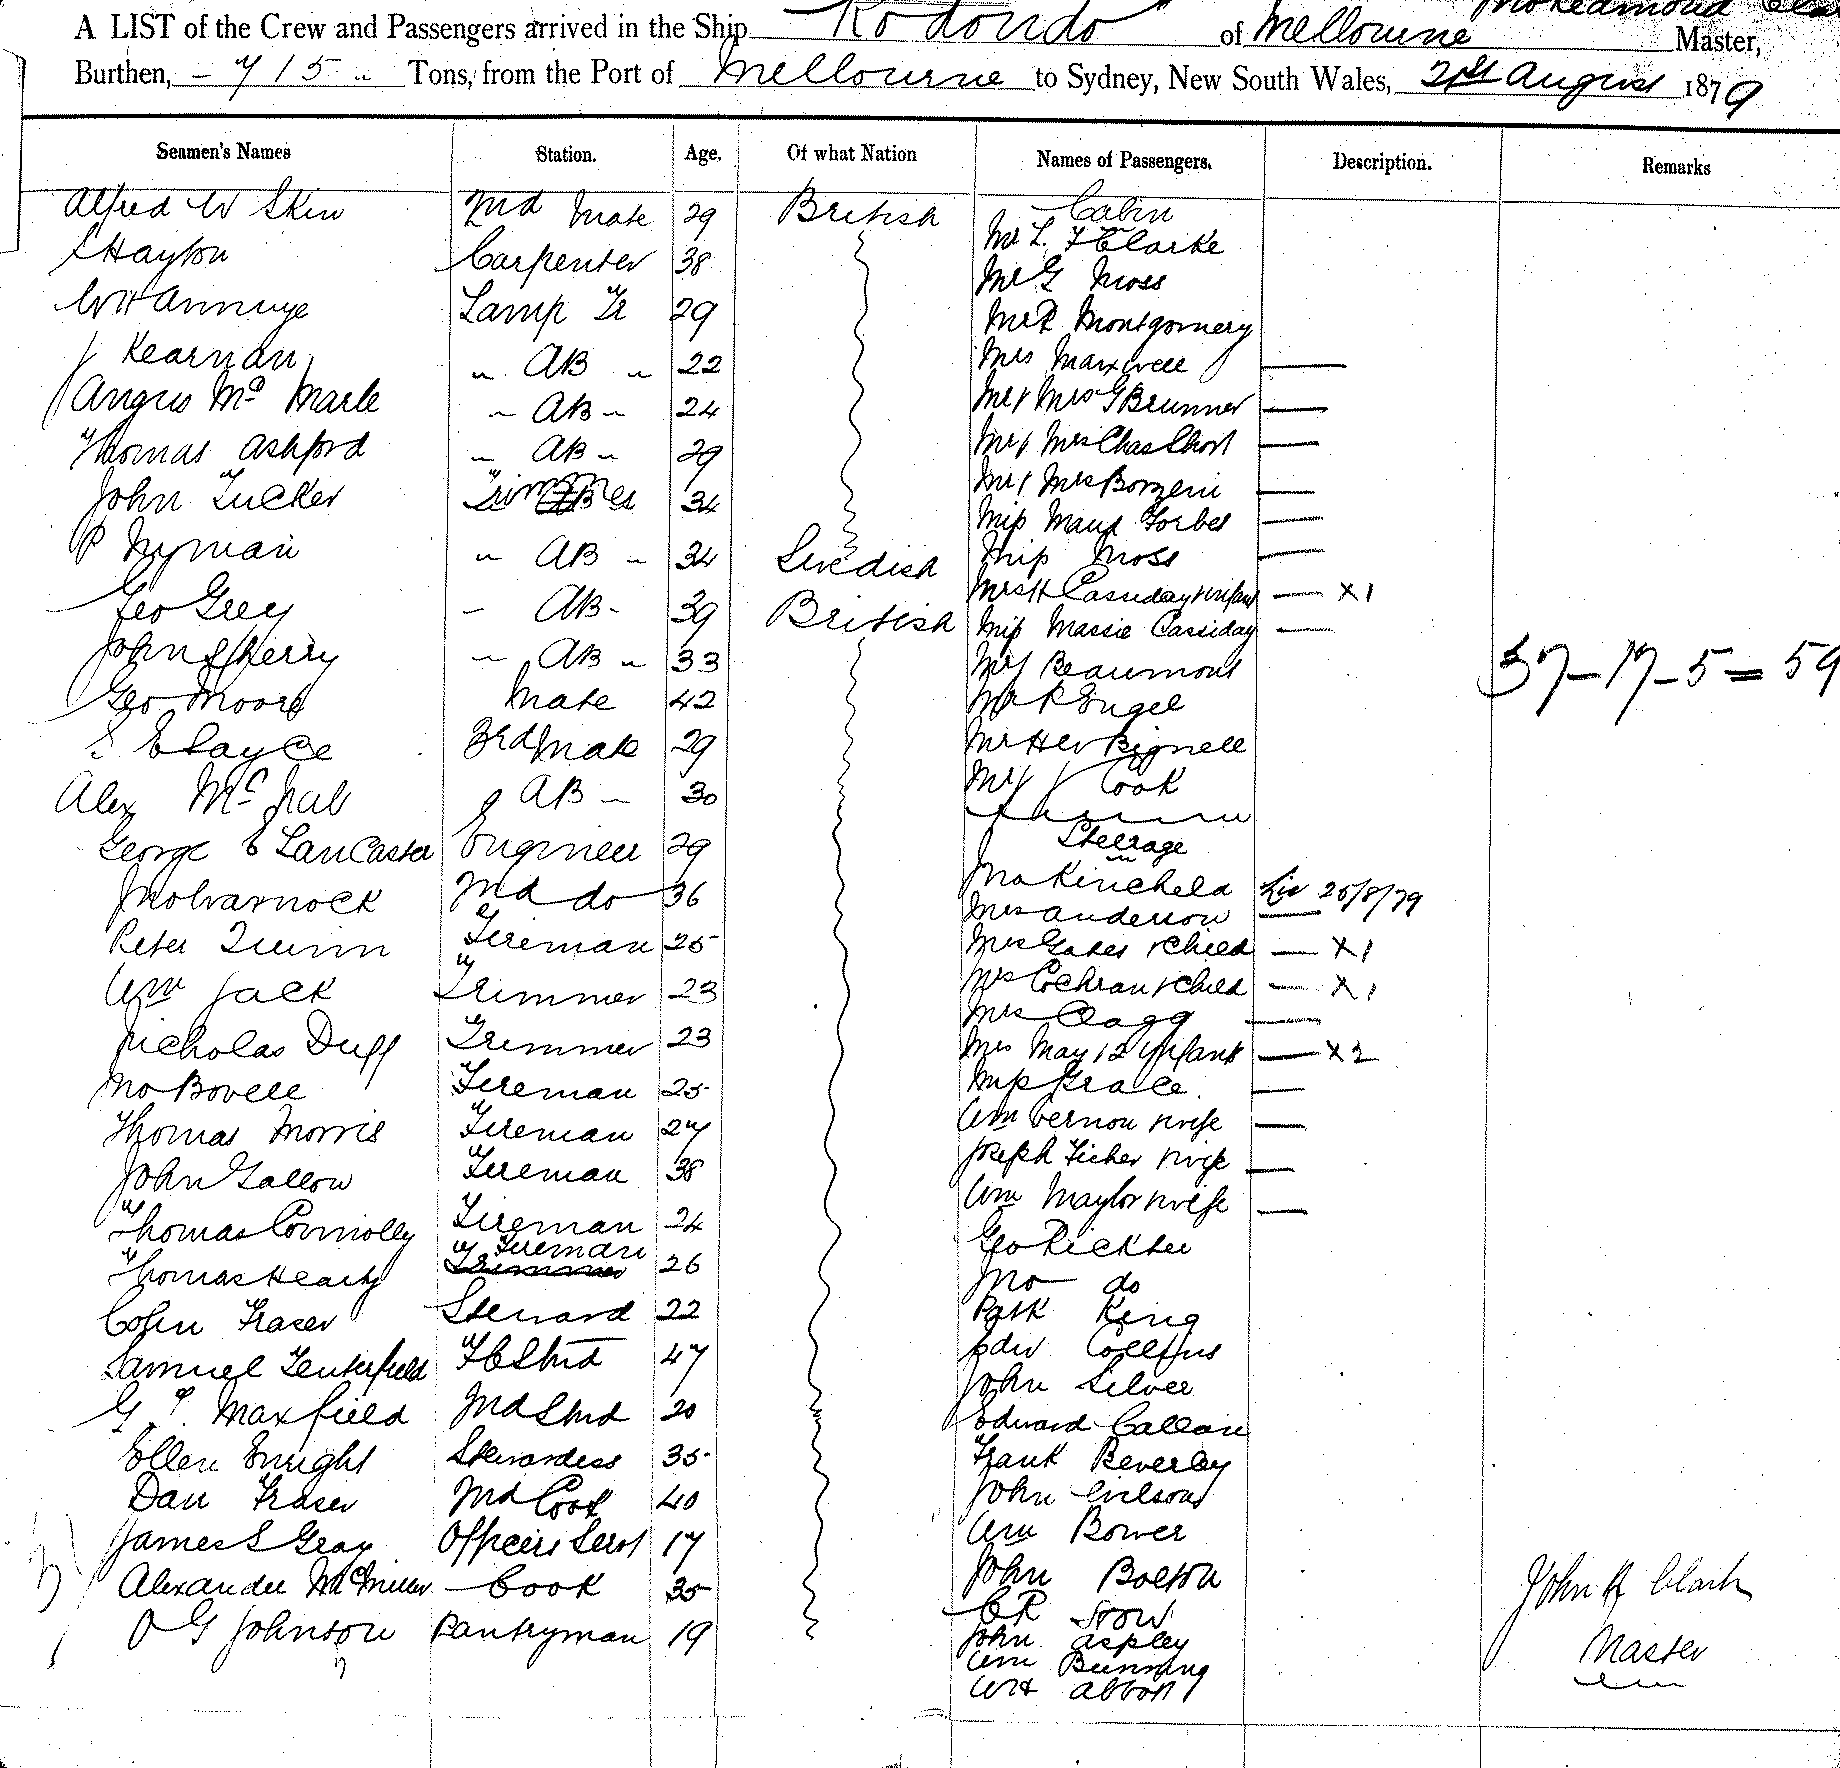 A LIST of the Crew and Passengers arrived in the Ship Rodondo of Melbourne Master,
Burthen, 715 Tons, from the Port of Melbourne to Sydney, New South Wales, 21st August 1879
Seamen's Names Station. Age. Of what Nation Names of Passengers. Description. Remarks
Alfred W Skin 2nd Mate 29 British Cabin
Hayton Carpenter 38 Mr L. F Clarke
Lamp Tr 29 Mr G Moss
J Kearnan " AB " 22 Mr R Montgomery
Angus Mc AB 24 Mrs Maxwell —
Thomas Ashford AB 29 Mr & Mrs G Brunner —
John Tucker Trimmer 34 Mr & Mrs Chas —
P Nyman " AB " 34 Swedish Mr & Mrs —
Geo Grey AB 39 British Miss Maud Forbes —
John Sherry " AB " 33 Miss Moss —
Geo Moore Mate 42 Mrs H Cassiday & infant — X1
3rd Mate 29 Miss Massie Cassiday —
Alex McNab AB 30 Mr J Beaumont
George E Lancaster Engineer 29 Mr R Engel
Jno Warnock 2nd do 36 Mr H W Bignell
Peter Quinn Fireman 25 Mr J Cook
Wm Jack Trimmer 23 Steerage
Nicholas Duff Trimmer 23 Jno Kincheld 25/8/79
Jno Bovell Fireman 25 Mrs Anderson —
Thomas Morris Fireman 27 Mrs Gates & Child — X1
John Gallow Fireman 38 Mrs Cochran & Child — X1
Thomas Connolly Fireman 24 Mrs Clagg —
Thomas Fireman Trimmer 26 Mrs May & 2 Infants — X2
Colin Fraser Steward 22 Miss Grace —
Samuel Tenterfield F C Stwd 47 Wm Vernon & wife —
G. Maxfield 2nd Stwd 20 Joseph Ficher & wife —
Ellen Enright Stewardess 35 Wm Maylor & wife —
Dan Fraser 2nd Cook 40 Geo Rickter
James S Gray Officers Servt 17 Jno do
Alexander McMillan Cook 35 Patk King
O G Johnson Pantryman 19 Edw Collins
John Silver
Edward Callan
Frank Beverley
John Wilson
Wm Bower
John Bolton
C R Snow
John Aspley
Wm Bunning
W H Abbott
37-17-5=59
John R Clark
Master